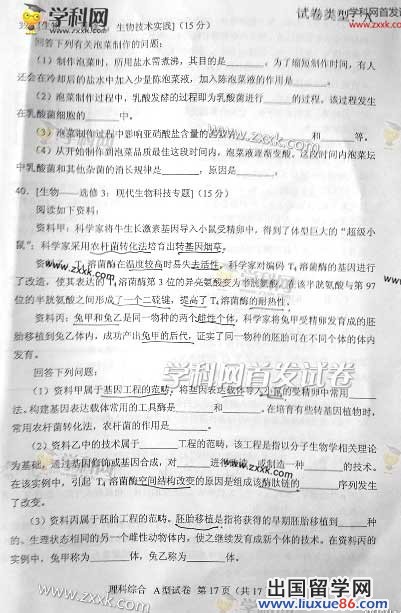 试卷类型：A
生物技术实践](15分)
回答下列有关泡菜制作的问题：
(1)制作泡菜时，所用盐水需煮沸，其目的是______。为了缩短制作时间，有人
还会在冷却后的盐水中加入少量陈泡菜液，加入陈泡菜液的作用是______。
(2)泡菜制作过程中，乳酸发酵的过程即为乳酸菌进行______的过程。该过程发生
在乳酸菌细胞的______中。
(3)泡菜制作过程中影响亚硝酸盐含量的因素有______、______和______等。
(4)从开始制作到泡菜品质最佳这段时间内，泡菜液逐渐变酸，这段时间内泡菜坛
中乳酸菌和其他杂菌的消长规律是______，原因是______。
40. [生物——选修3：现代生物科技专题](15分)
阅读如下资料：
资料甲：科学家将牛生长激素基因导入小鼠受精卵中，得到了体型巨大的“超级小
鼠”；科学家采用农杆菌转化法培育出转基因烟草。
资料乙：T₄溶菌酶在温度较高时易失去活性，科学家对编码T₄溶菌酶的基因进行
了改造，使其表达的T₄溶菌酶第3位的异亮氨酸变为半胱氨酸，在该半胱氨酸与第97
位的半胱氨酸之间形成了一个二硫键，提高了T₄溶菌酶的耐热性。
资料丙：兔甲和兔乙是同一物种的两个雌性个体，科学家将兔甲受精卵发育成的胚
胎移植到兔乙体内，成功产出兔甲的后代，证实了同一物种的胚胎可在不同个体的体内
发育。
回答下列问题：
(1)资料甲属于基因工程的范畴。将基因表达载体导入小鼠的受精卵中常用______
法。构建基因表达载体常用的工具酶是______和______。在培育有些转基因植物时，
常用农杆菌转化法，农杆菌的作用是______。
(2)资料乙中的技术属于______工程的范畴，该工程是指以分子生物学相关理论
为基础，通过基因修饰或基因合成，对______进行改造，或制造一种______的技术。
在该实例中，引起T₄溶菌酶空间结构改变的原因是组成该酶肽链的______序列发生
了改变。
(3)资料丙属于胚胎工程的范畴。胚胎移植是指将获得的早期胚胎移植到______种
的、生理状态相同的另一个雌性动物体内，使之继续发育成新个体的技术。在资料丙的
实例中，兔甲称为______体，兔乙称为______体。
理科综合 A型试卷 第17页（共17
学科网首发试卷
www.zxxk.com
出国留学网
www.liuxue86.com